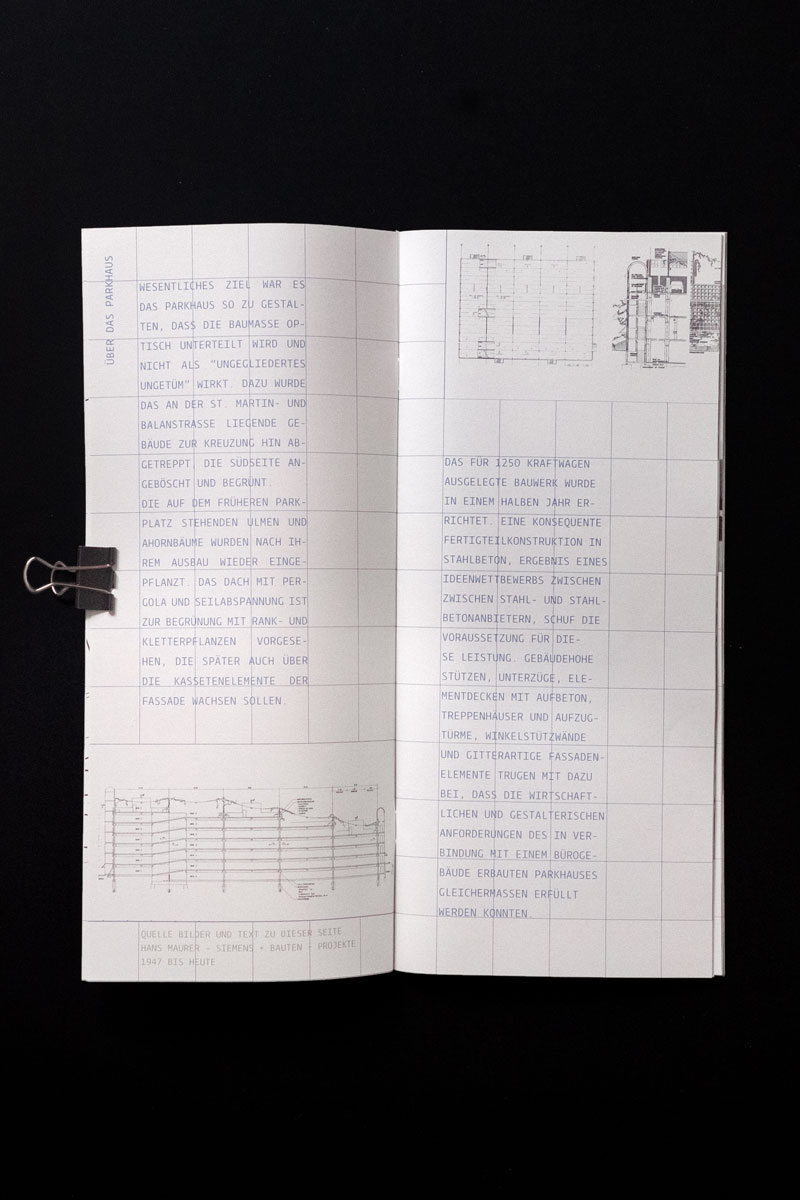 ÜBER DAS PARKHAUS
WESENTLICHES ZIEL WAR ES
DAS PARKHAUS SO ZU GESTAL-
TEN, DASS DIE BAUMASSE OP-
TISCH UNTERTEILT WIRD UND
NICHT ALS "UNGEGLIEDERTES
UNGETÜM" WIRKT. DAZU WURDE
DAS AN DER ST. MARTIN- UND
BALANSTRASSE LIEGENDE GE-
BÄUDE ZUR KREUZUNG HIN AB-
GETREPPT, DIE SÜDSEITE AN-
GEBÖSCHT UND BEGRÜNT.
DIE AUF DEM FRÜHEREN PARK-
PLATZ STEHENDEN ULMEN UND
AHORNBÄUME WURDEN NACH IH-
REM AUSBAU WIEDER EINGE-
PFLANZT. DAS DACH MIT PER-
GOLA UND SEILABSPANNUNG IST
ZUR BEGRÜNUNG MIT RANK- UND
KLETTERPFLANZEN VORGESE-
HEN, DIE SPÄTER AUCH ÜBER
DIE KASSETENELEMENTE DER
FASSADE WACHSEN SOLLEN.
QUELLE BILDER UND TEXT ZU DIESER SEITE
HANS MAURER - SIEMENS + BAUTEN - PROJEKTE
1947 BIS HEUTE
DAS FÜR 1250 KRAFTWAGEN
AUSGELEGTE BAUWERK WURDE
IN EINEM HALBEN JAHR ER-
RICHTET. EINE KONSEQUENTE
FERTIGTEILKONSTRUKTION IN
STAHLBETON, ERGEBNIS EINES
IDEENWETTBEWERBS ZWISCHEN
ZWISCHEN STAHL- UND STAHL-
BETONANBIETERN, SCHUF DIE
VORAUSSETZUNG FÜR DIE-
SE LEISTUNG. GEBÄUDEHOHE
STÜTZEN, UNTERZÜGE, ELE-
MENTDECKEN MIT AUFBETON,
TREPPENHÄUSER UND AUFZUG-
TÜRME, WINKELSTÜTZWÄNDE
UND GITTERARTIGE FASSADEN-
ELEMENTE TRUGEN MIT DAZU
BEI, DASS DIE WIRTSCHAFT-
LICHEN UND GESTALTERISCHEN
ANFORDERUNGEN DES IN VER-
BINDUNG MIT EINEM BÜROGE-
BÄUDE ERBAUTEN PARKHAUSES
GLEICHERMASSEN ERFÜLLT
WERDEN KONNTEN.